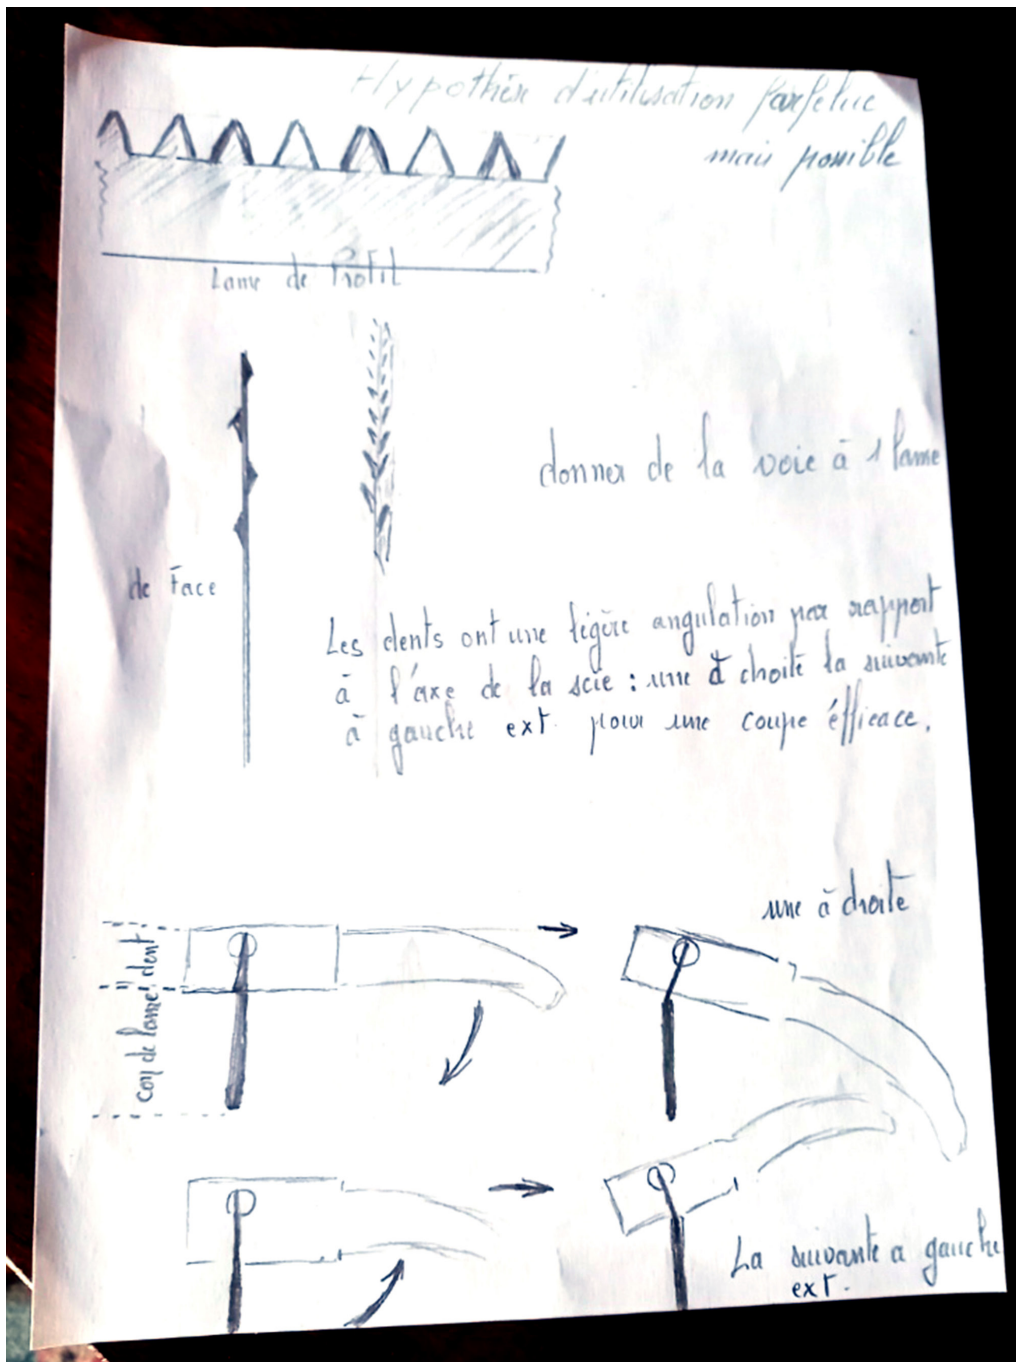 Hypothèse d'utilisation farfelue
mais possible
Lame de Profil
donner de la voie à 1 lame
de Face
Les dents ont une légère angulation par rapport
à l'axe de la scie : une à droite la suivante
à gauche ext. pour une coupe éfficace.
une à droite
dent
de lame
La suivante a gauche
ext.